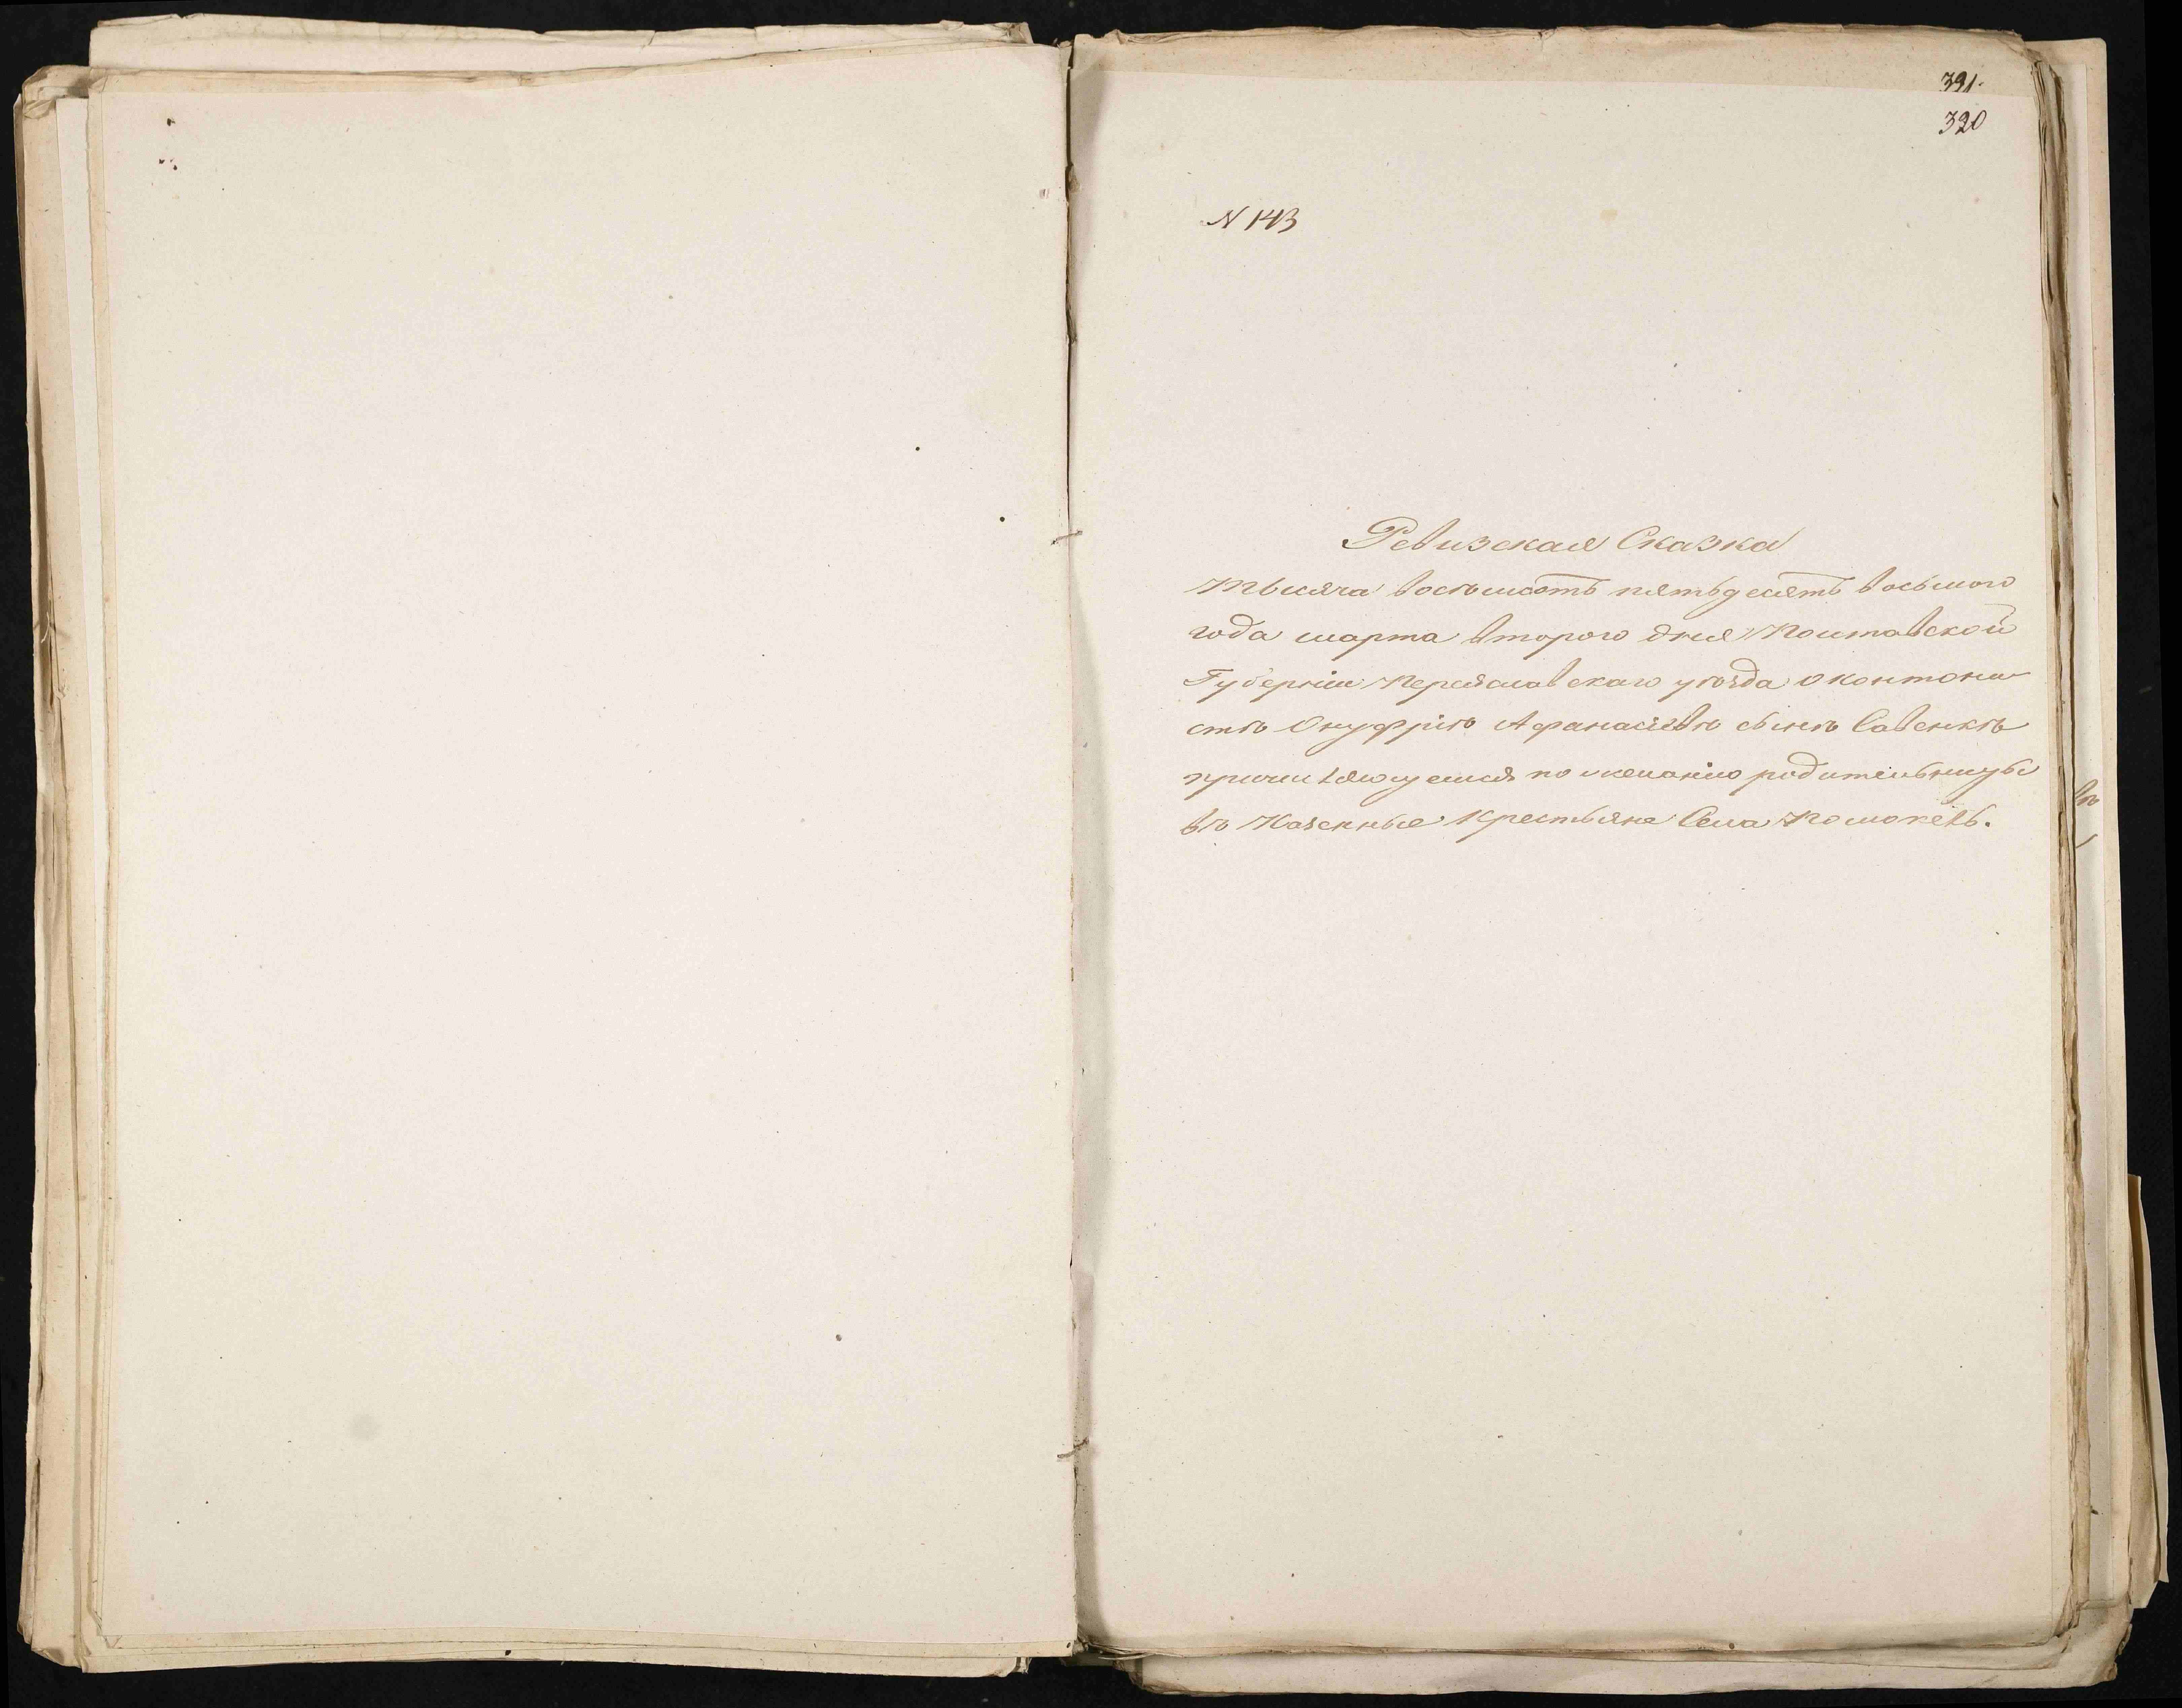 391.
320
N 143
Ревизская Сказка
Тысяча восьмсотъ пятьдесятъ восьмого
года марта второго дня Полтавской
Губерніи Переяславскаго уѣзда о кантони
стѣ Онуфріѣ Афанасіевѣ сынѣ Савенкѣ
причисляющемся по желанію родительницы
въ Казенные Крестьяне Села Помоклъ.